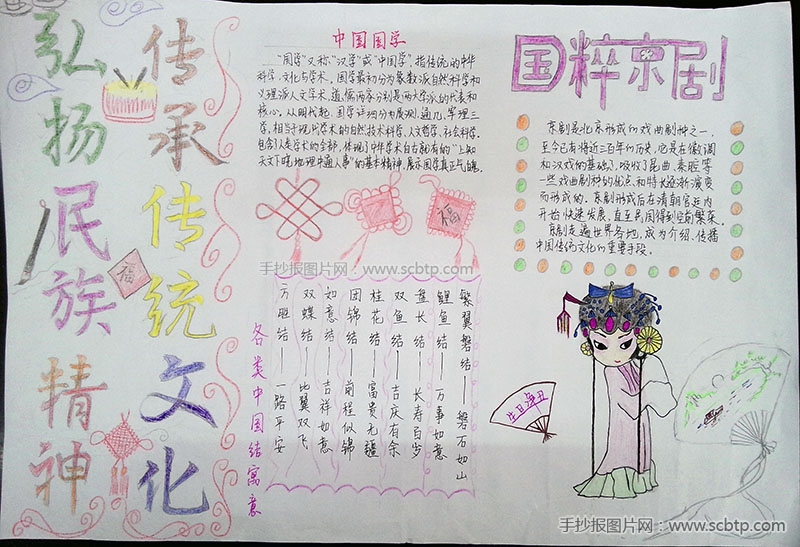 传承传统文化
弘扬民族精神
福
中国国学
"国学"又称"汉学"或"中国学",指传统的中华
科学,文化与学术。国学最初分为象数派自然科学和
义理派人文学术,道、儒两家分别是两大学派的代表和
核心。从明代起,国学详细分为质测、通几、宰理三
学,相当于现代学术的自然技术科学、人文哲学、社会科学,
包含了人类学术的全部,体现了中华学术自古就有的"上知
天文下晓地理中通人事"的基本精神,展示国学真正气魄。
福
手抄报图片网:www.scbtp.com
繁翼磐结——磐石如山
鲤鱼结——万事如意
盘长结——长寿百岁
双鱼结——吉庆有余
桂花结——富贵无疆
团锦结——前程似锦
如意结——吉祥如意
双蝶结——比翼双飞
方胜结——一路平安
各类中国结寓意
国粹京剧
京剧是北京形成的戏曲剧种之一,
至今已有将近二百年的历史,它是在徽调
和汉戏的基础上,吸收了昆曲、秦腔等
一些戏曲剧种的优点和特长逐渐演变
而形成的。京剧形成后在清朝宫廷内
开始快速发展,直至民国得到空前繁荣。
京剧走遍世界各地,成为介绍、传播
中国传统文化的重要手段。
生旦净丑
手抄报图片网:www.scbtp.com